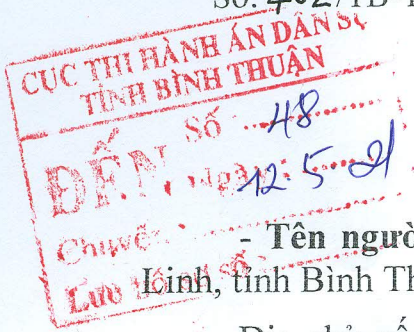 Số: 402/TB
CỤC THI HÀNH ÁN DÂN SỰ
TỈNH BÌNH THUẬN
ĐẾN
Số 48
Ngày 12.5.21
Chuyển
Lưu hồ sơ số
- Tên ngườ
Linh, tỉnh Bình Th